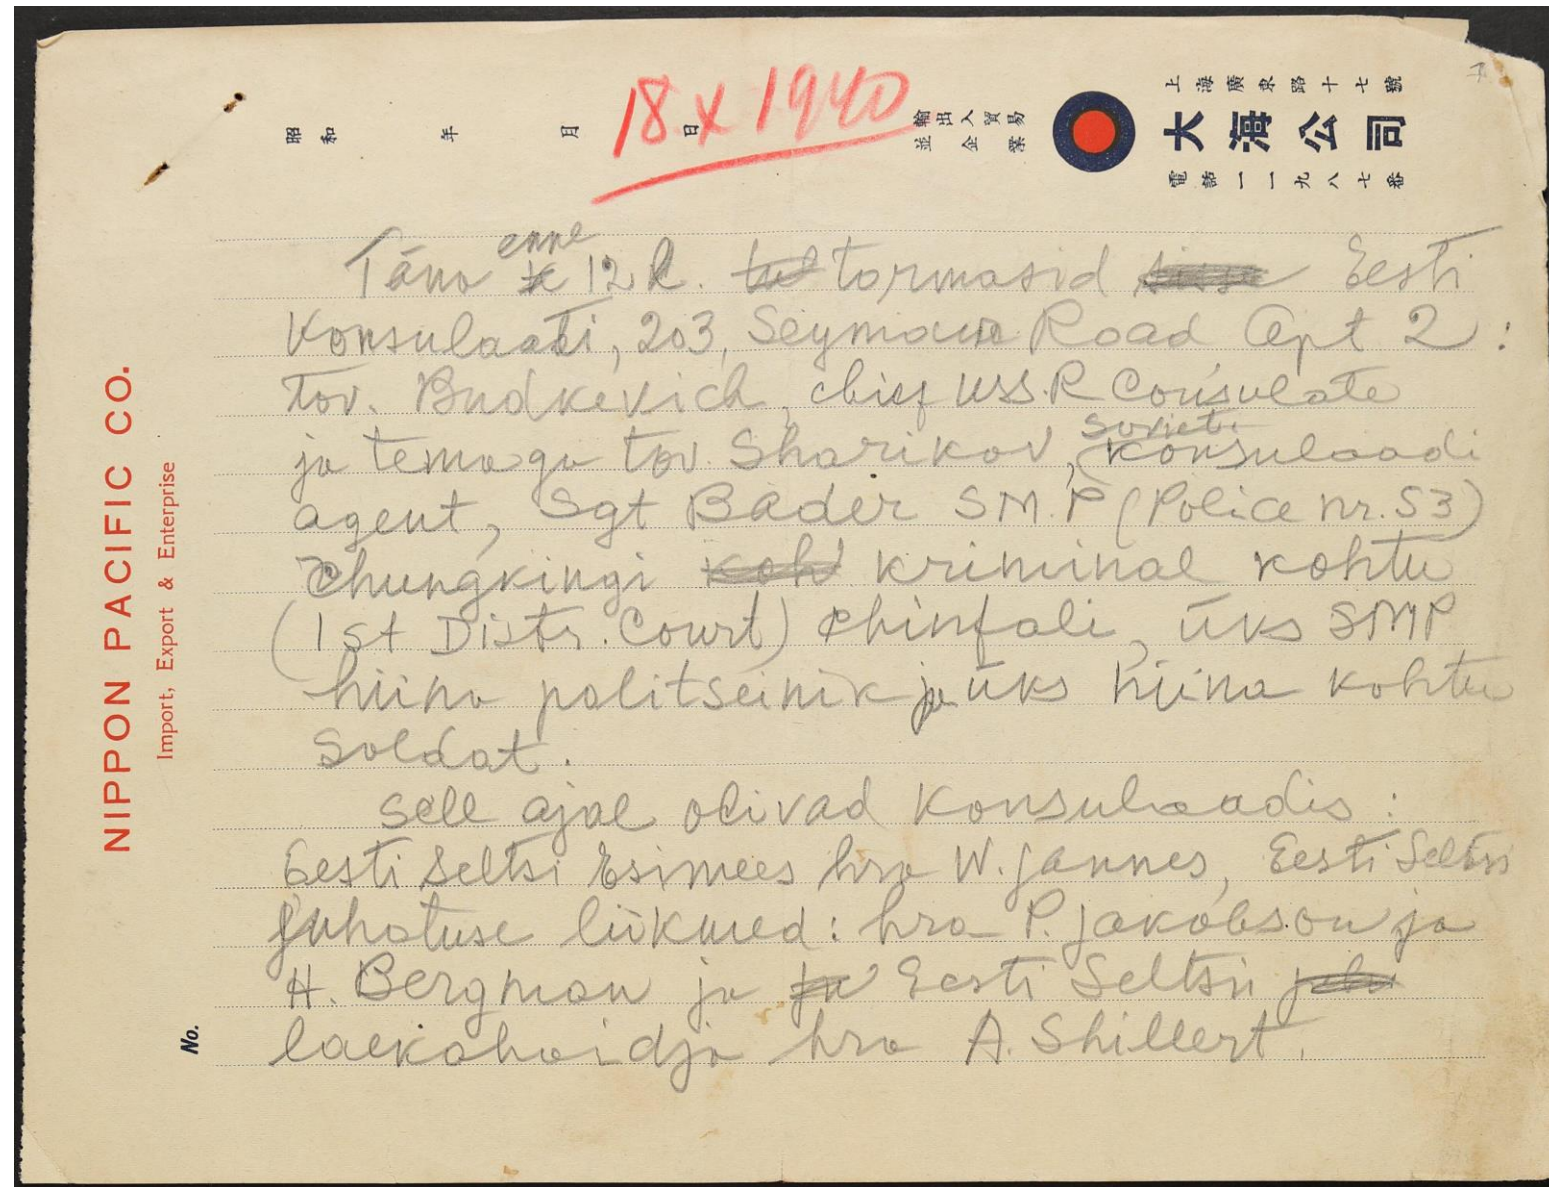 18 X 1940
昭和 年 月 日
輸出入貿易
並企業
上海廣東路十七號
大海公司
電話一一九八七番
NIPPON PACIFIC CO.
Import, Export & Enterprise
No.
Täna enne 12 k. tormasid Eesti
Konsulaati, 203, Seymour Road Apt 2:
tov. Budkevich, chief USS.R Consulate
ja temaga tov. Sharikov, Sovieti konsulaadi
agent, Sgt Bader SM.P (Police nr. 53)
Chungkingi kriminal kohtu
(1st Distr. Court) Chinfali, üks SMP
hiina politseinik ja üks hiina kohtu
soldat.
Sell ajal olivad Konsulaadis:
Eesti Seltsi Esimees hra W. Jannes, Eesti Seltsi
Juhatuse liikmed: hra P. Jakobson ja
H. Bergman ja Eesti Seltsi
laekahoidja hra A. Shillert.